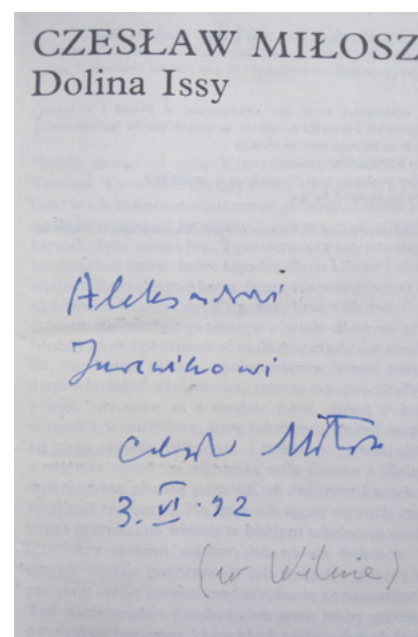 CZESŁAW MIŁOSZ
Dolina Issy
Aleksandrowi
Jurewiczowi
Czesław Miłosz
3. VI. 92
(w Wilnie)